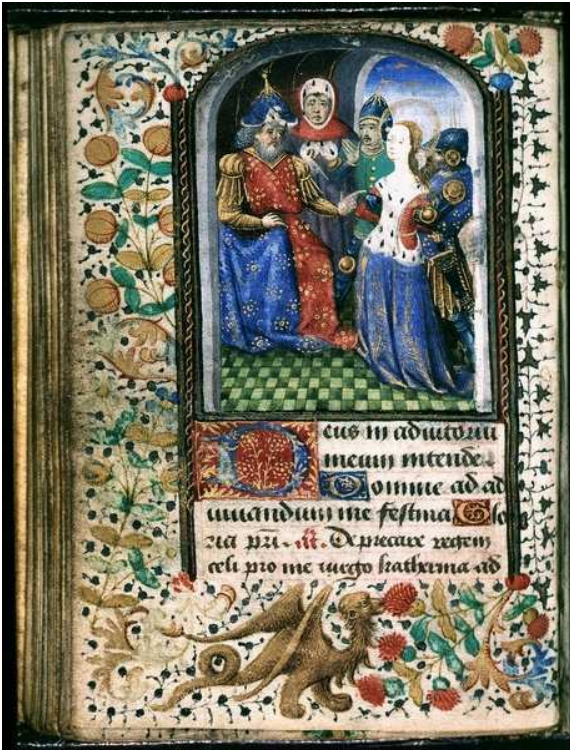 Deus in adiutoriu
meum intende.
Domine ad ad
iuuandum me festina Glo
ria pri. Deprecare regem
celi pro me uirgo katherina ad